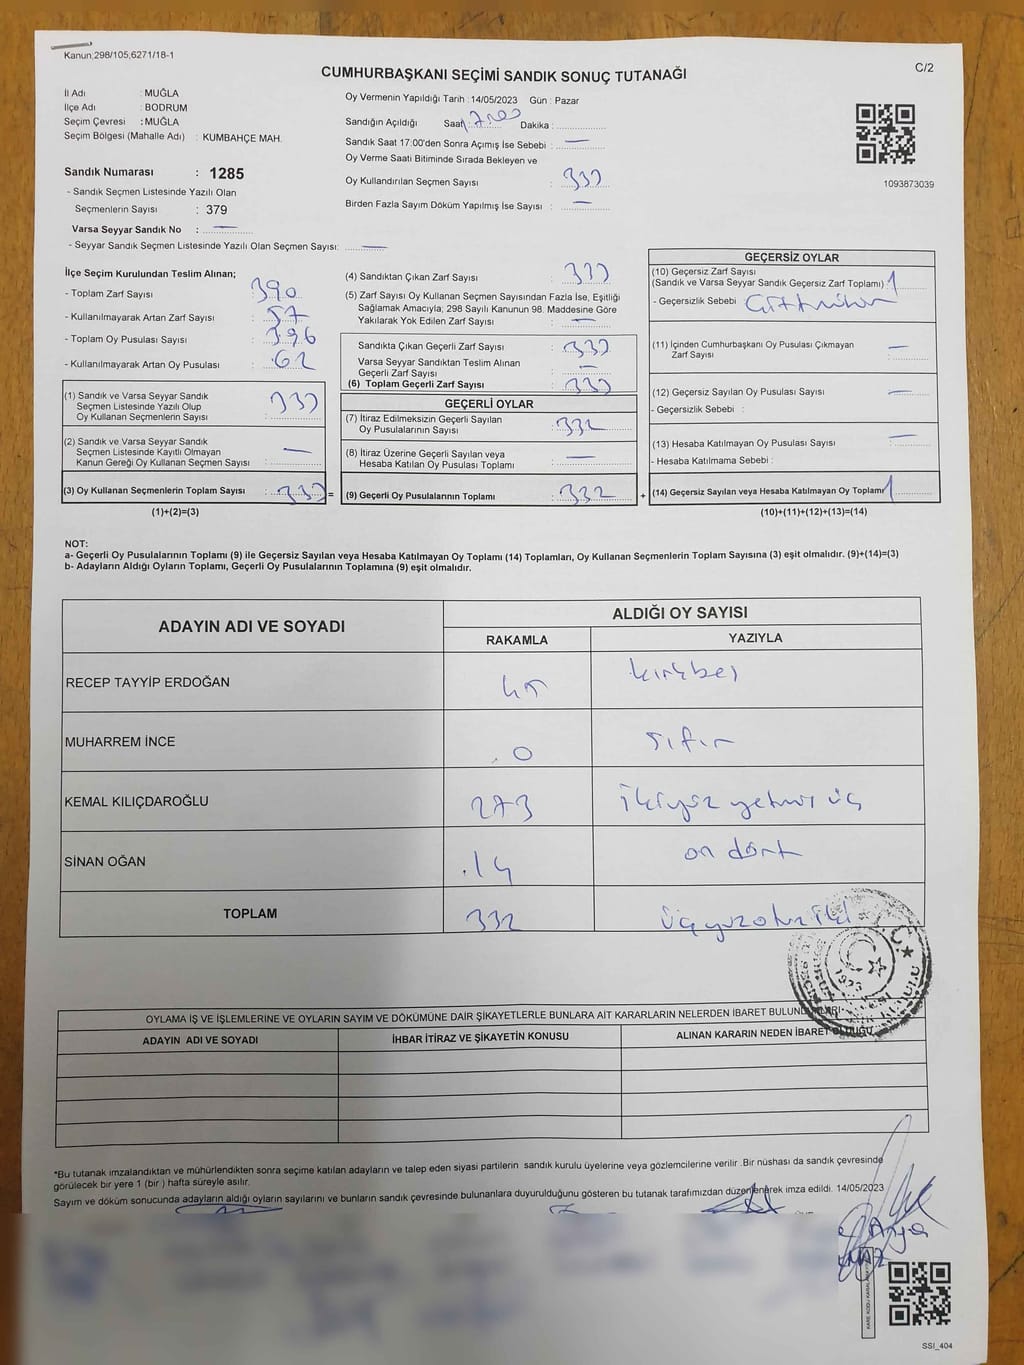 Kanun;298/105;6271/18-1
CUMHURBAŞKANI SEÇİMİ SANDIK SONUÇ TUTANAĞI
C/2
İl Adı : MUĞLA
İlçe Adı : BODRUM
Seçim Çevresi : MUĞLA
Seçim Bölgesi (Mahalle Adı) : KUMBAHÇE MAH.
Sandık Numarası : 1285
- Sandık Seçmen Listesinde Yazılı Olan
Seçmenlerin Sayısı : 379
Varsa Seyyar Sandık No : —
- Seyyar Sandık Seçmen Listesinde Yazılı Olan Seçmen Sayısı: —
Oy Vermenin Yapıldığı Tarih : 14/05/2023 Gün : Pazar
Sandığın Açıldığı Saat Dakika :
Sandık Saat 17:00'den Sonra Açımış İse Sebebi : —
Oy Verme Saati Bitiminde Sırada Bekleyen ve
Oy Kullandırılan Seçmen Sayısı : 333
Birden Fazla Sayım Döküm Yapılmış İse Sayısı : —
1093873039
İlçe Seçim Kurulundan Teslim Alınan;
- Toplam Zarf Sayısı 390
- Kullanılmayarak Artan Zarf Sayısı : 57
- Toplam Oy Pusulası Sayısı : 396
- Kullanılmayarak Artan Oy Pusulası : 62
(1) Sandık ve Varsa Seyyar Sandık
Seçmen Listesinde Yazılı Olup
Oy Kullanan Seçmenlerin Sayısı : 333
(2) Sandık ve Varsa Seyyar Sandık
Seçmen Listesinde Kayıtlı Olmayan
Kanun Gereği Oy Kullanan Seçmen Sayısı : —
(3) Oy Kullanan Seçmenlerin Toplam Sayısı : 333 =
(1)+(2)=(3)
(4) Sandıktan Çıkan Zarf Sayısı : 333
(5) Zarf Sayısı Oy Kullanan Seçmen Sayısından Fazla İse, Eşitliği
Sağlamak Amacıyla; 298 Sayılı Kanunun 98. Maddesine Göre
Yakılarak Yok Edilen Zarf Sayısı : —
Sandıkta Çıkan Geçerli Zarf Sayısı : 333
Varsa Seyyar Sandıktan Teslim Alınan
Geçerli Zarf Sayısı : —
(6) Toplam Geçerli Zarf Sayısı : 333
GEÇERLİ OYLAR
(7) İtiraz Edilmeksizin Geçerli Sayılan
Oy Pusulalarının Sayısı : 332
(8) İtiraz Üzerine Geçerli Sayılan veya
Hesaba Katılan Oy Pusulası Toplamı : —
(9) Geçerli Oy Pusulalarının Toplamı : 332 +
GEÇERSİZ OYLAR
(10) Geçersiz Zarf Sayısı
(Sandık ve Varsa Seyyar Sandık Geçersiz Zarf Toplamı) : 1
- Geçersizlik Sebebi :
(11) İçinden Cumhurbaşkanı Oy Pusulası Çıkmayan
Zarf Sayısı : —
(12) Geçersiz Sayılan Oy Pusulası Sayısı : —
- Geçersizlik Sebebi :
(13) Hesaba Katılmayan Oy Pusulası Sayısı : —
- Hesaba Katılmama Sebebi :
(14) Geçersiz Sayılan veya Hesaba Katılmayan Oy Toplamı 1
(10)+(11)+(12)+(13)=(14)
NOT:
a- Geçerli Oy Pusulalarının Toplamı (9) ile Geçersiz Sayılan veya Hesaba Katılmayan Oy Toplamı (14) Toplamları, Oy Kullanan Seçmenlerin Toplam Sayısına (3) eşit olmalıdır. (9)+(14)=(3)
b- Adayların Aldığı Oyların Toplamı, Geçerli Oy Pusulalarının Toplamına (9) eşit olmalıdır.
ADAYIN ADI VE SOYADI ALDIĞI OY SAYISI
RAKAMLA YAZIYLA
RECEP TAYYİP ERDOĞAN 45 kırkbeş
MUHARREM İNCE 0 sıfır
KEMAL KILIÇDAROĞLU 273 ikiyüz yetmiş üç
SİNAN OĞAN 14 on dört
TOPLAM 332 üçyüzotuziki
OYLAMA İŞ VE İŞLEMLERİNE VE OYLARIN SAYIM VE DÖKÜMÜNE DAİR ŞİKAYETLERLE BUNLARA AİT KARARLARIN NELERDEN İBARET BULUNDUKLARI
ADAYIN ADI VE SOYADI İHBAR İTİRAZ VE ŞİKAYETİN KONUSU ALINAN KARARIN NEDEN İBARET OLDUĞU
*Bu tutanak imzalandıktan ve mühürlendikten sonra seçime katılan adayların ve talep eden siyasi partilerin sandık kurulu üyelerine veya gözlemcilerine verilir .Bir nüshası da sandık çevresinde
görülecek bir yere 1 (bir ) hafta süreyle asılır.
Sayım ve döküm sonucunda adayların aldığı oyların sayılarını ve bunların sandık çevresinde bulunanlara duyurulduğunu gösteren bu tutanak tarafımızdan düzenlenerek imza edildi. 14/05/2023
SSİ_404